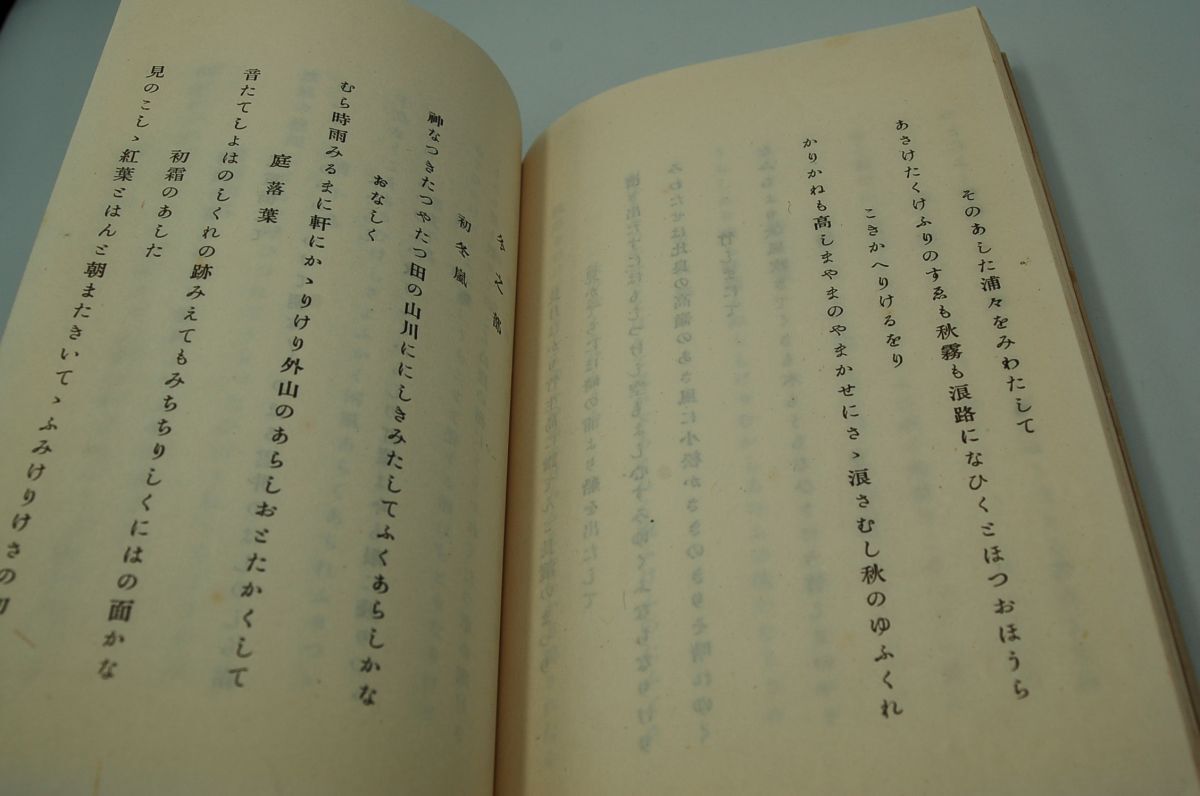 そのあした浦々をみわたして
あさけたくけふりのすゑも秋霧も浪路になひくとほつおほうら
こきかへりけるをり
かりかねも高しまやまのやまかせにさゝ浪さむし秋のゆふくれ
冬之部
初冬嵐
神なつきたつやたつ田の山川ににしきみたしてふくあらしかな
おなしく
むら時雨みるまに軒にかゝりけり外山のあらしおとたかくして
庭落葉
音たてしよはのしくれの跡みえてもみちちりしくにはの面かな
初霜のあした
見のこしゝ紅葉とはんと朝またきいてゝふみけりけさの初